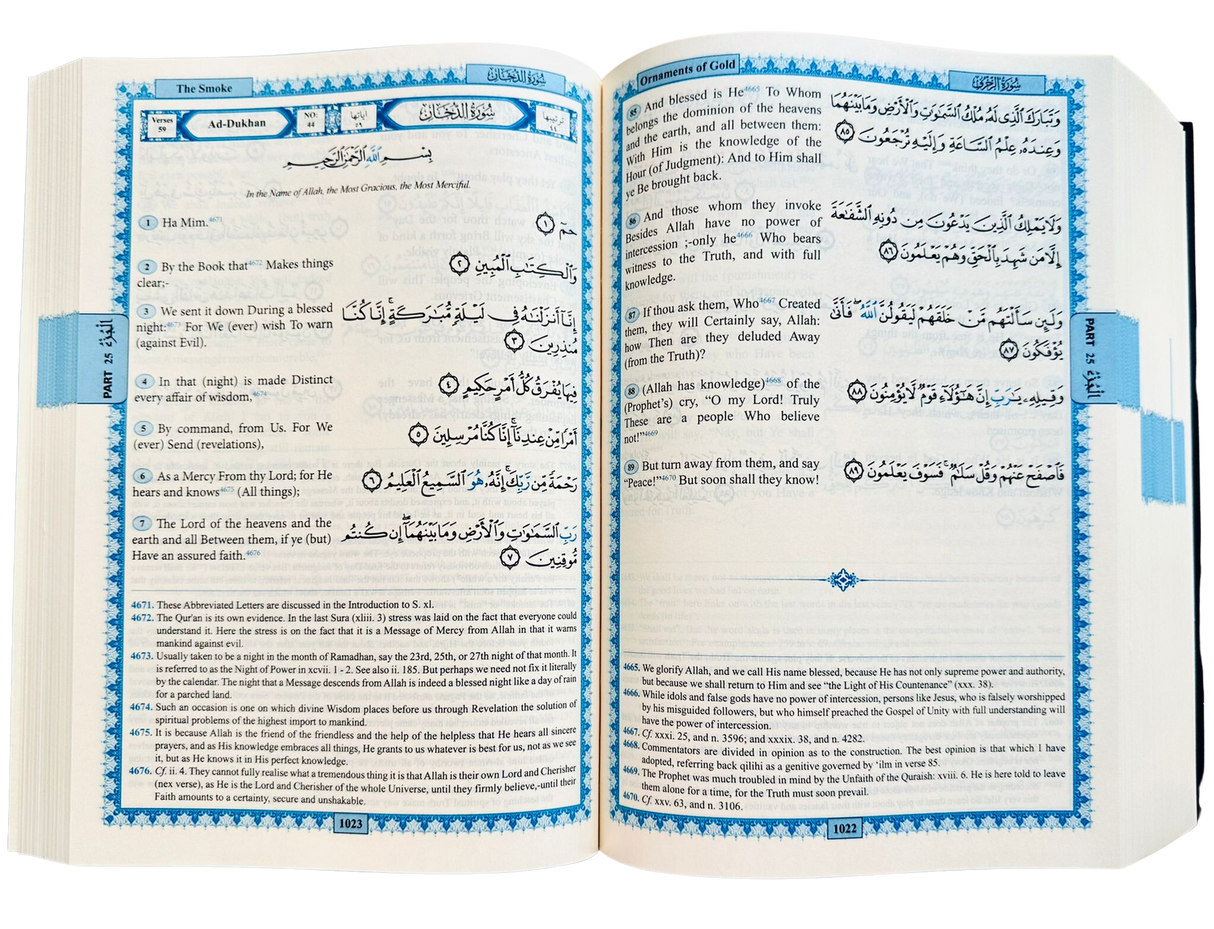 Ornaments of Gold
سُورَةُ الزُّخْرُفِ
85 And blessed is He4665 To Whom
belongs the dominion of the heavens
and the earth, and all between them:
With Him is the knowledge of the
Hour (of Judgment): And to Him shall
ye Be brought back.
وَتَبَارَكَ ٱلَّذِى لَهُۥ مُلْكُ ٱلسَّمَـٰوَٰتِ وَٱلْأَرْضِ وَمَا بَيْنَهُمَا
وَعِندَهُۥ عِلْمُ ٱلسَّاعَةِ وَإِلَيْهِ تُرْجَعُونَ ٨٥
86 And those whom they invoke
Besides Allah have no power of
intercession ;-only he4666 Who bears
witness to the Truth, and with full
knowledge.
وَلَا يَمْلِكُ ٱلَّذِينَ يَدْعُونَ مِن دُونِهِ ٱلشَّفَـٰعَةَ
إِلَّا مَن شَهِدَ بِٱلْحَقِّ وَهُمْ يَعْلَمُونَ ٨٦
87 If thou ask them, Who4667 Created
them, they will Certainly say, Allah:
how Then are they deluded Away
(from the Truth)?
وَلَئِن سَأَلْتَهُم مَّنْ خَلَقَهُمْ لَيَقُولُنَّ ٱللَّهُ ۖ فَأَنَّىٰ
يُؤْفَكُونَ ٨٧
88 (Allah has knowledge)4668 of the
(Prophet's) cry, “O my Lord! Truly
These are a people Who believe
not!”4669
وَقِيلِهِۦ يَـٰرَبِّ إِنَّ هَـٰٓؤُلَآءِ قَوْمٌ لَّا يُؤْمِنُونَ ٨٨
89 But turn away from them, and say
“Peace!”4670 But soon shall they know!
فَٱصْفَحْ عَنْهُمْ وَقُلْ سَلَـٰمٌ ۚ فَسَوْفَ يَعْلَمُونَ ٨٩
4665. We glorify Allah, and we call His name blessed, because He has not only supreme power and authority,
but because we shall return to Him and see “the Light of His Countenance” (xxx. 38).
4666. While idols and false gods have no power of intercession, persons like Jesus, who is falsely worshipped
by his misguided followers, but who himself preached the Gospel of Unity with full understanding will
have the power of intercession.
4667. Cf. xxxi. 25, and n. 3596; and xxxix. 38, and n. 4282.
4668. Commentators are divided in opinion as to the construction. The best opinion is that which I have
adopted, referring back qilihi as a genitive governed by ‘ilm in verse 85.
4669. The Prophet was much troubled in mind by the Unfaith of the Quraish: xviii. 6. He is here told to leave
them alone for a time, for the Truth must soon prevail.
4670. Cf. xxv. 63, and n. 3106.
1022
PART 25 الْجُزْءُ
The Smoke
سُورَةُ الدُّخَانِ
Verses
59
Ad-Dukhan
NO:
44
آياتها
٥٩
سُورَةُ الدُّخَانِ
ترتيبها
٤٤
بِسْمِ ٱللَّهِ ٱلرَّحْمَـٰنِ ٱلرَّحِيمِ
In the Name of Allah, the Most Gracious, the Most Merciful.
1 Ha Mim.4671
حمٓ ١
2 By the Book that4672 Makes things
clear;-
وَٱلْكِتَـٰبِ ٱلْمُبِينِ ٢
3 We sent it down During a blessed
night:4673 For We (ever) wish To warn
(against Evil).
إِنَّآ أَنزَلْنَـٰهُ فِى لَيْلَةٍ مُّبَـٰرَكَةٍ ۚ إِنَّا كُنَّا
مُنذِرِينَ ٣
4 In that (night) is made Distinct
every affair of wisdom,4674
فِيهَا يُفْرَقُ كُلُّ أَمْرٍ حَكِيمٍ ٤
5 By command, from Us. For We
(ever) Send (revelations),
أَمْرًا مِّنْ عِندِنَآ ۚ إِنَّا كُنَّا مُرْسِلِينَ ٥
6 As a Mercy From thy Lord; for He
hears and knows4675 (All things);
رَحْمَةً مِّن رَّبِّكَ ۚ إِنَّهُۥ هُوَ ٱلسَّمِيعُ ٱلْعَلِيمُ ٦
7 The Lord of the heavens and the
earth and all Between them, if ye (but)
Have an assured faith.4676
رَبِّ ٱلسَّمَـٰوَٰتِ وَٱلْأَرْضِ وَمَا بَيْنَهُمَآ ۖ إِن كُنتُم
مُّوقِنِينَ ٧
4671. These Abbreviated Letters are discussed in the Introduction to S. xl.
4672. The Qur'an is its own evidence. In the last Sura (xliii. 3) stress was laid on the fact that everyone could
understand it. Here the stress is on the fact that it is a Message of Mercy from Allah in that it warns
mankind against evil.
4673. Usually taken to be a night in the month of Ramadhan, say the 23rd, 25th, or 27th night of that month. It
is referred to as the Night of Power in xcvii. 1 - 2. See also ii. 185. But perhaps we need not fix it literally
by the calendar. The night that a Message descends from Allah is indeed a blessed night like a day of rain
for a parched land.
4674. Such an occasion is one on which divine Wisdom places before us through Revelation the solution of
spiritual problems of the highest import to mankind.
4675. It is because Allah is the friend of the friendless and the help of the helpless that He hears all sincere
prayers, and as His knowledge embraces all things, He grants to us whatever is best for us, not as we see
it, but as He knows it in His perfect knowledge.
4676. Cf. ii. 4. They cannot fully realise what a tremendous thing it is that Allah is their own Lord and Cherisher
(nex verse), as He is the Lord and Cherisher of the whole Universe, until they firmly believe,-until their
Faith amounts to a certainty, secure and unshakable.
1023
PART 25 الْجُزْءُ